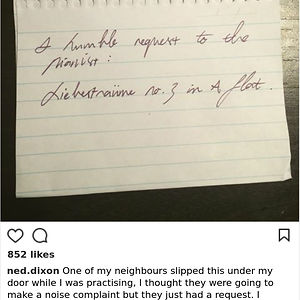 A humble request to the
pianist:
Liebestraüme no. 3 in A flat.
852 likes
ned.dixon One of my neighbours slipped this under my
door while I was practising, I thought they were going to
make a noise complaint but they just had a request. I